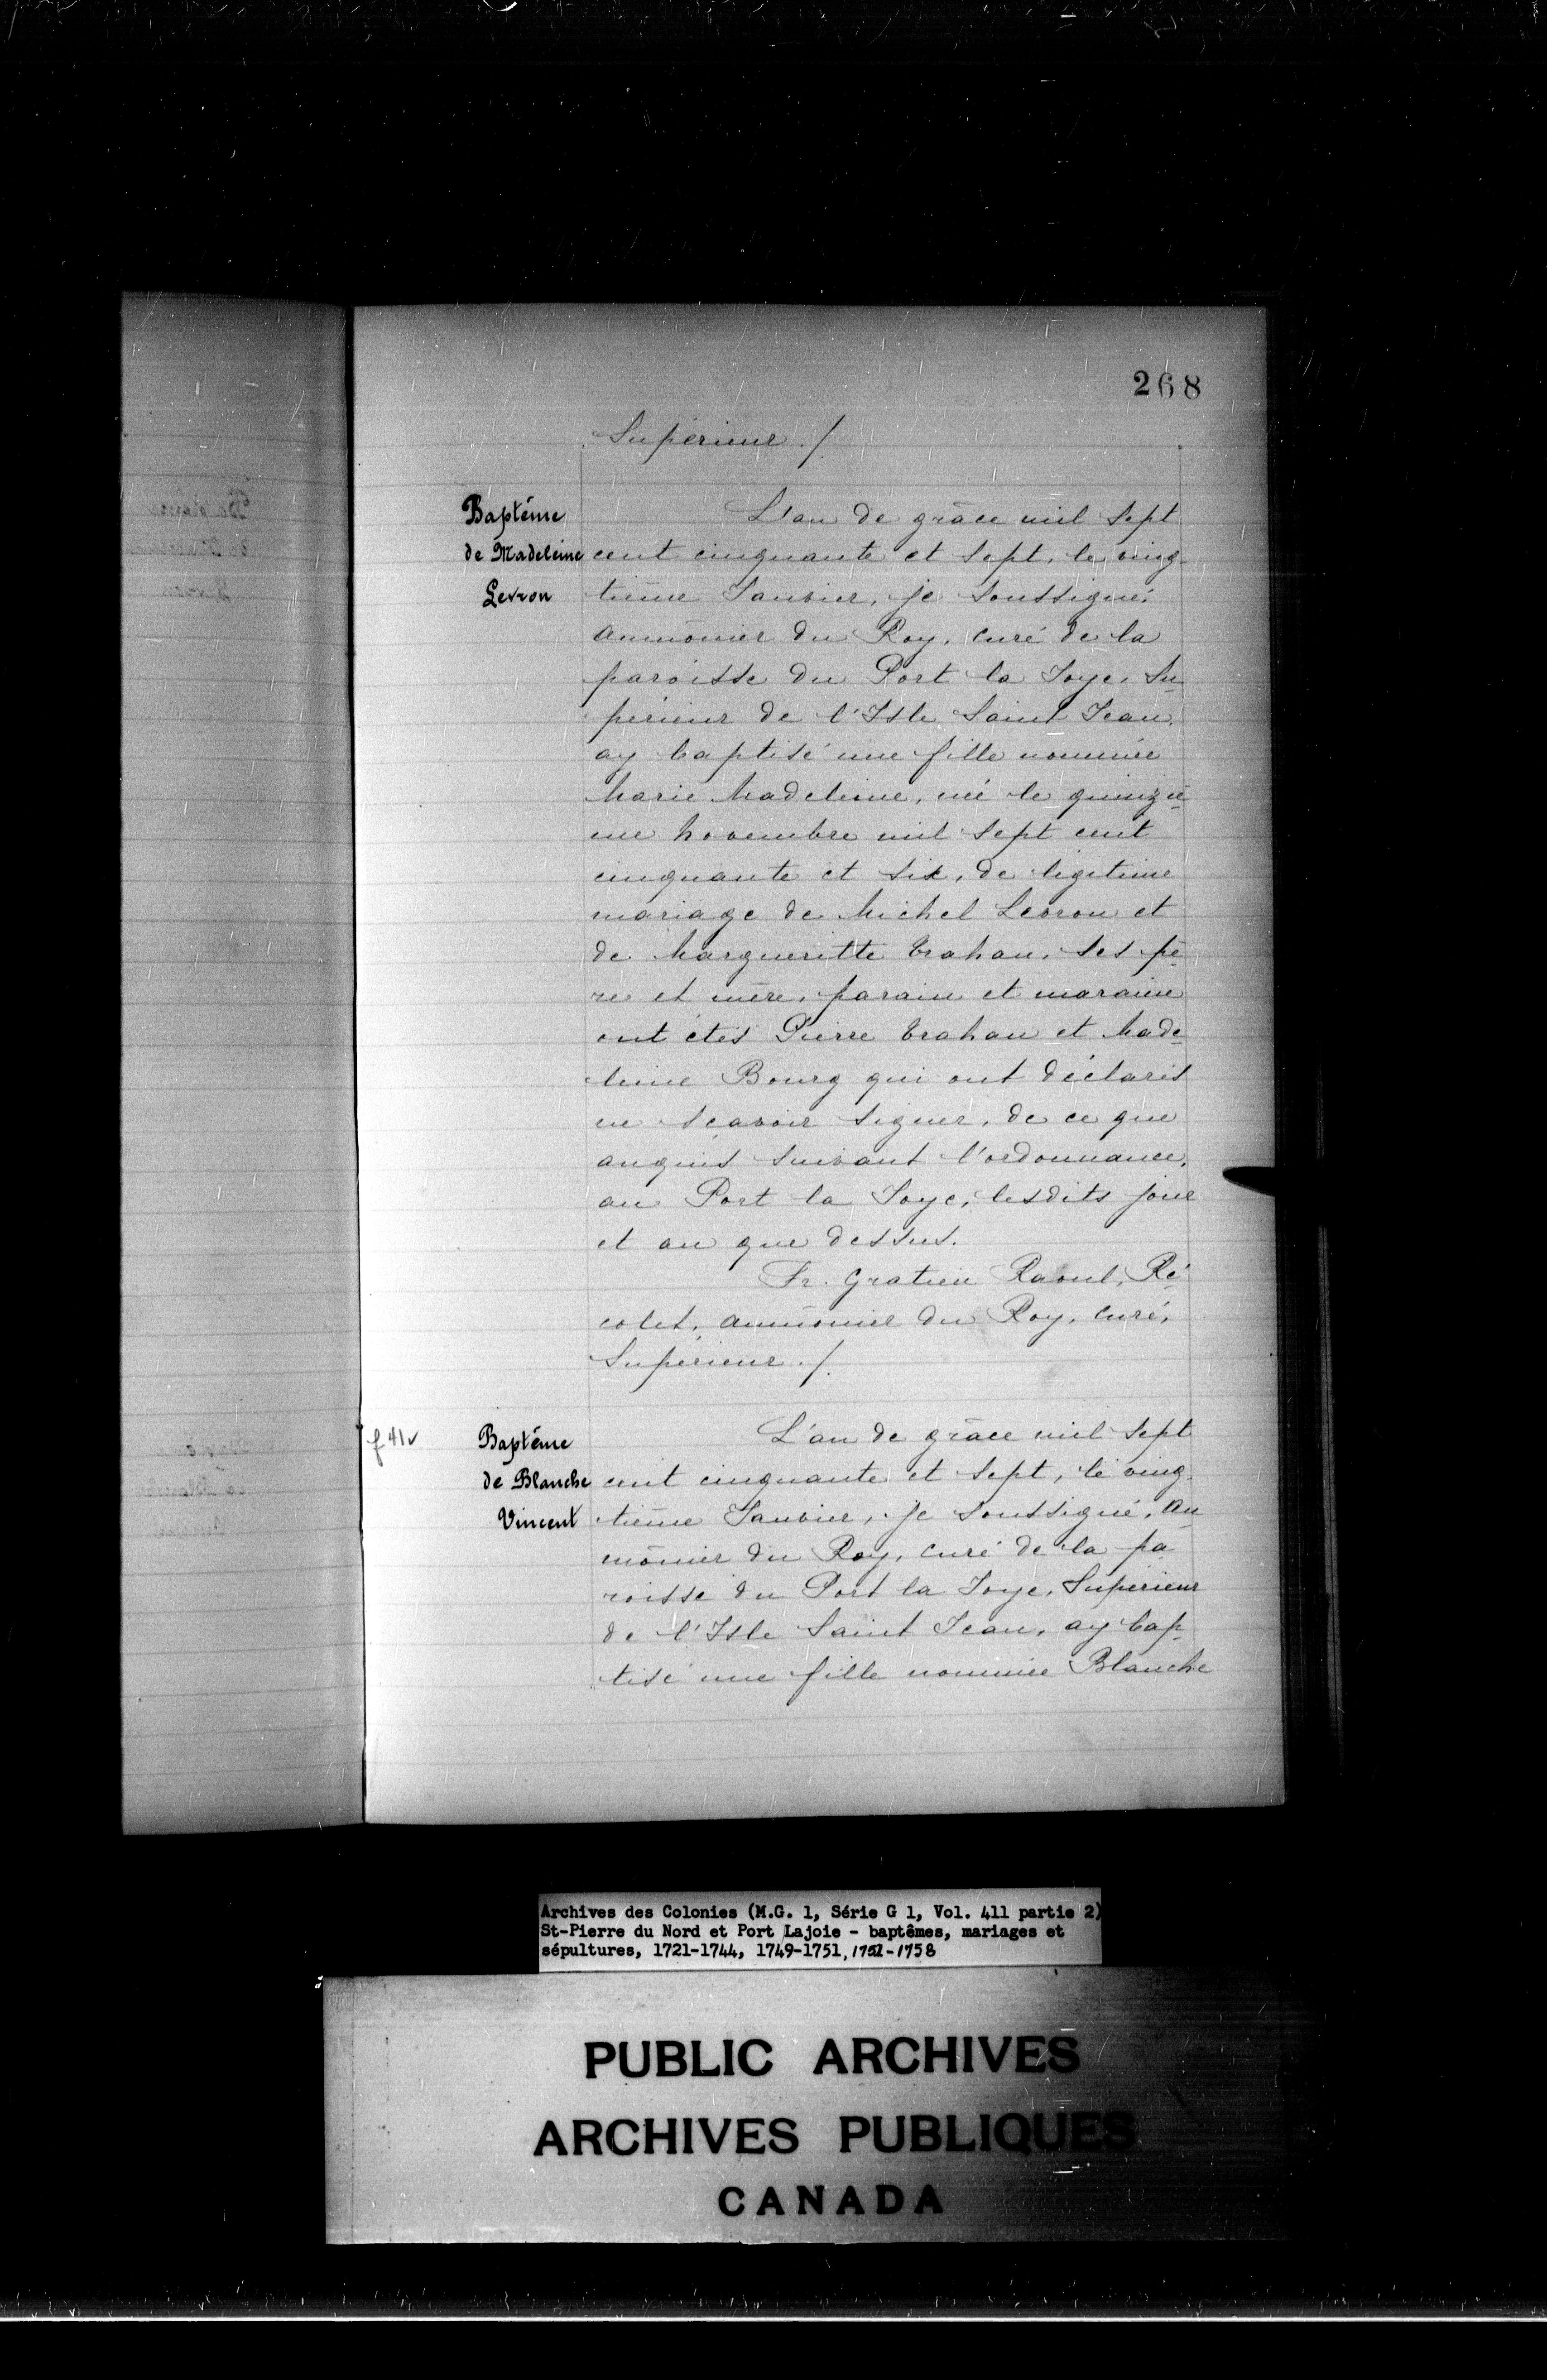 268
Supérieur ./.
Baptême
de Madeleine
Levron
L'an de grâce mil sept
cent cinquante et sept, le ving-
tième Janvier, je soussigné,
aumônier du Roy, curé de la
paroisse du Port la Joye, Su-
périeur de l'Isle Saint Jean,
ay baptisé une fille nommée
Marie Madeleine, né le quinziè-
me novembre mil sept cent
cinquante et six, de légitime
mariage de Michel Levron et
de Margueritte Trahan, ses pè-
re et mère, parain et maraine
ont étés Pierre Trahan et Made-
leine Bourg qui ont déclarés
ne sçavoir signer, de ce que
anquis suivant l'ordonnance,
au Port la Joye, lesdits jour
et an que dessus.
Fr. Gratien Raoul, Ré-
colet, aumônier du Roy, curé,
Supérieur ./.
f 41v
Baptême
de Blanche
Vincent
L'an de grâce mil sept
cent cinquante et sept, le ving-
tième Janvier, je soussigné, au-
mônier du Roy, curé de la pa-
roisse du Port la Joye, Supérieur
de l'Isle Saint Jean, ay bap-
tisé une fille nommée Blanche
Archives des Colonies (M.G. 1, Série G 1, Vol. 411 partie 2)
St-Pierre du Nord et Port Lajoie - baptêmes, mariages et
sépultures, 1721-1744, 1749-1751, 1752-1758
PUBLIC ARCHIVES
ARCHIVES PUBLIQUES
CANADA